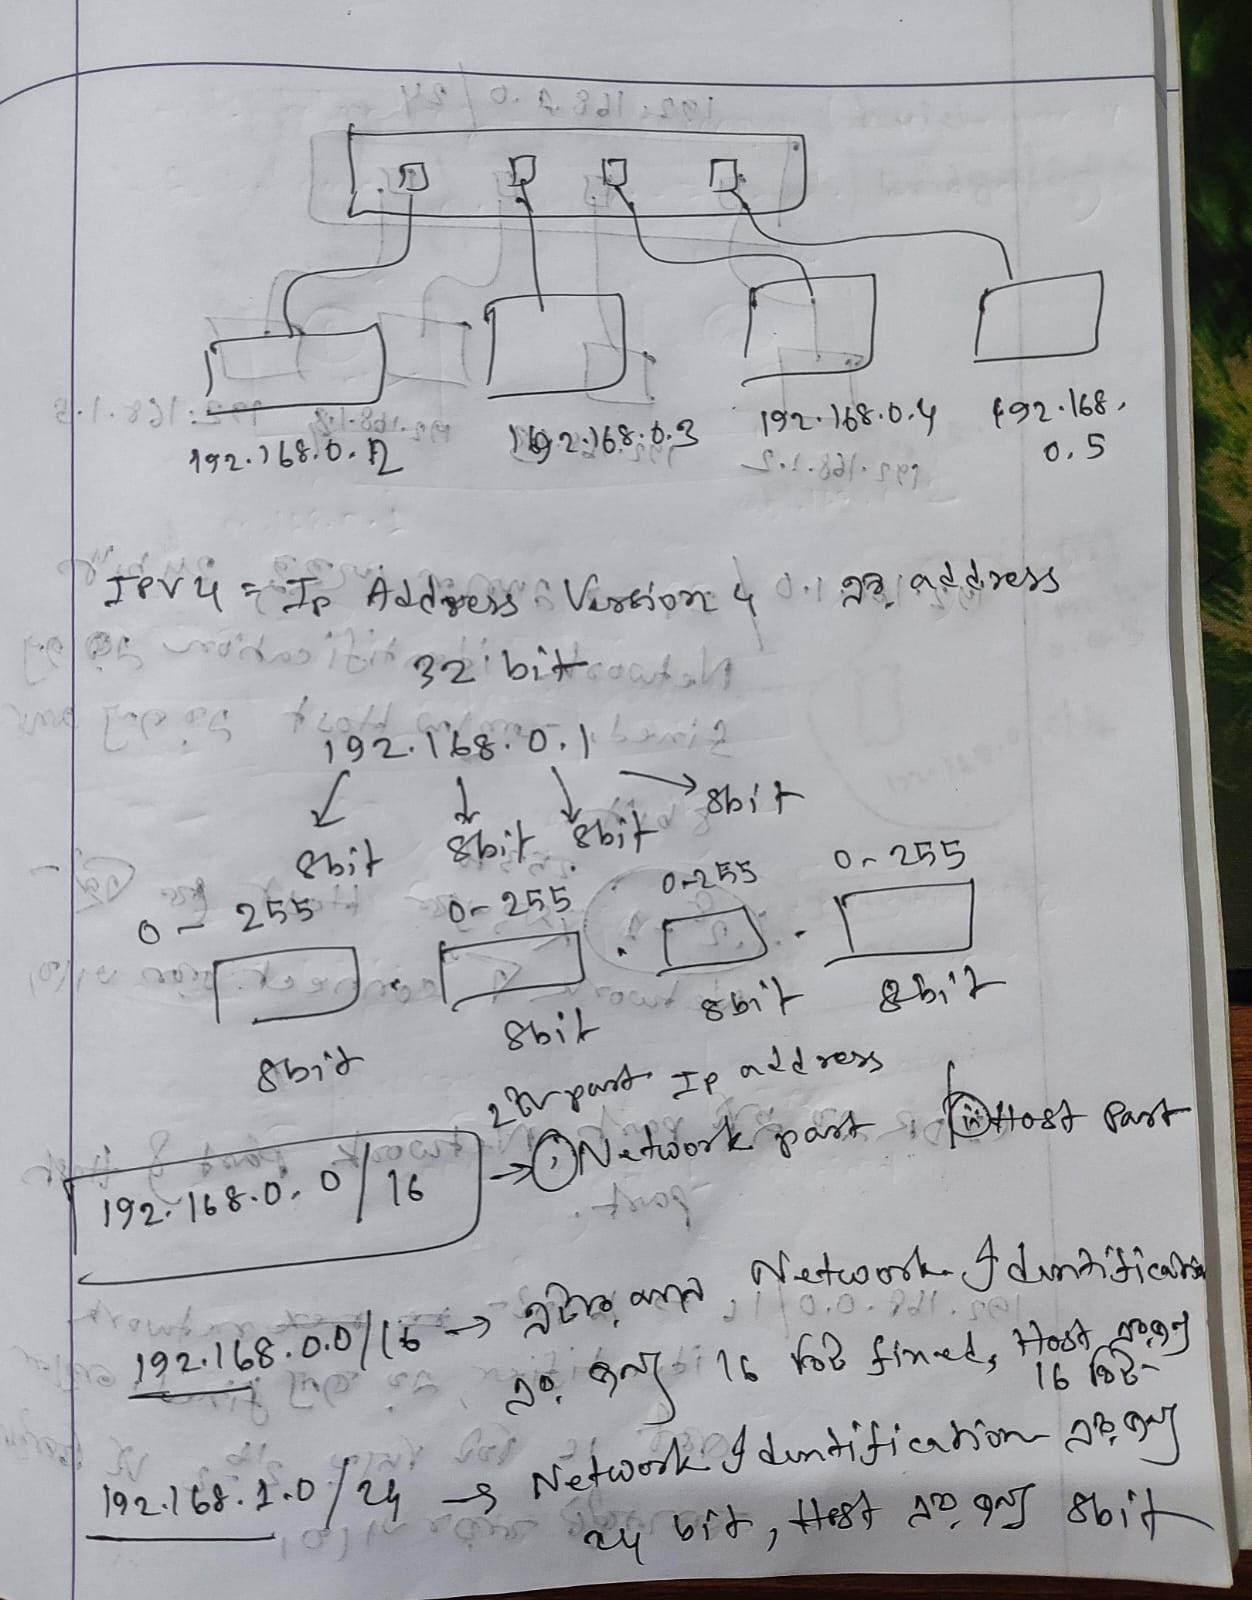 192.168.0.2
192.168.0.3
192.168.0.4
192.168.
0.5
IPV4 = Ip Address Version 4 এর address
32 bit
192.168.0.1
8bit 8bit 8bit 8bit
0-255 0-255 0-255 0-255
8bit 8bit 8bit 8bit
part Ip address
192.168.0.0/16 → (i) Network part (ii) Host Part
192.168.0.0/16 → এটার মানে Network Identification
এর জন্য 16 বিট fixed, Host এর জন্য
16 বিট
192.168.1.0/24 → Network Identification এর জন্য
24 bit, Host এর জন্য 8bit